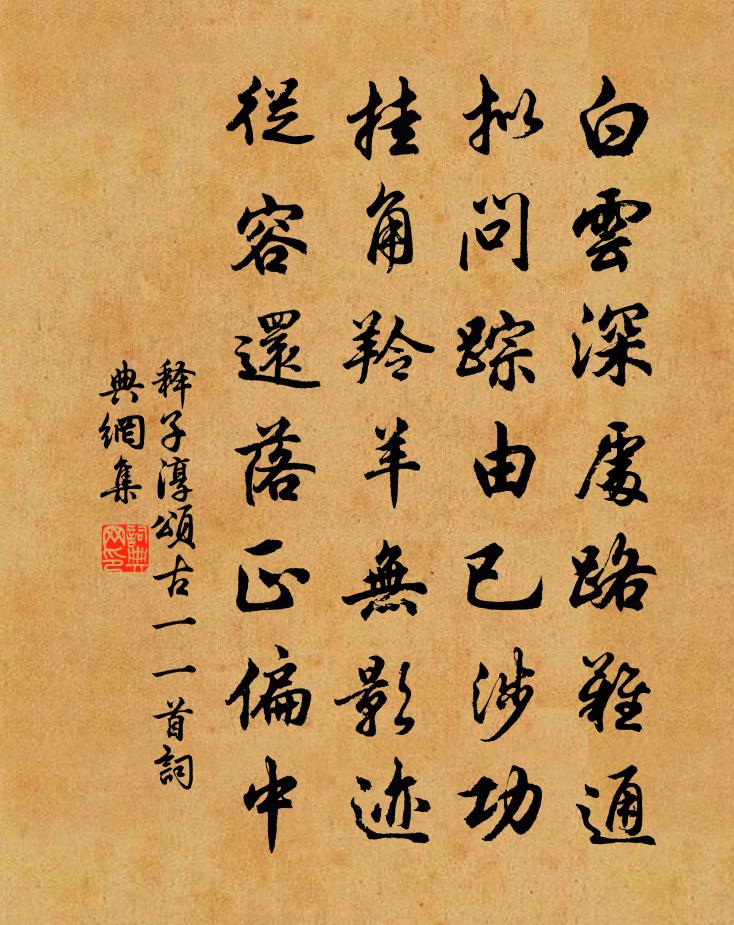 白雲深處路難通
拟問踪由已涉功
挂角羚羊無影迹
從容還落正偏中
释子淳頌古一一首詞
典網集
詞典
网印